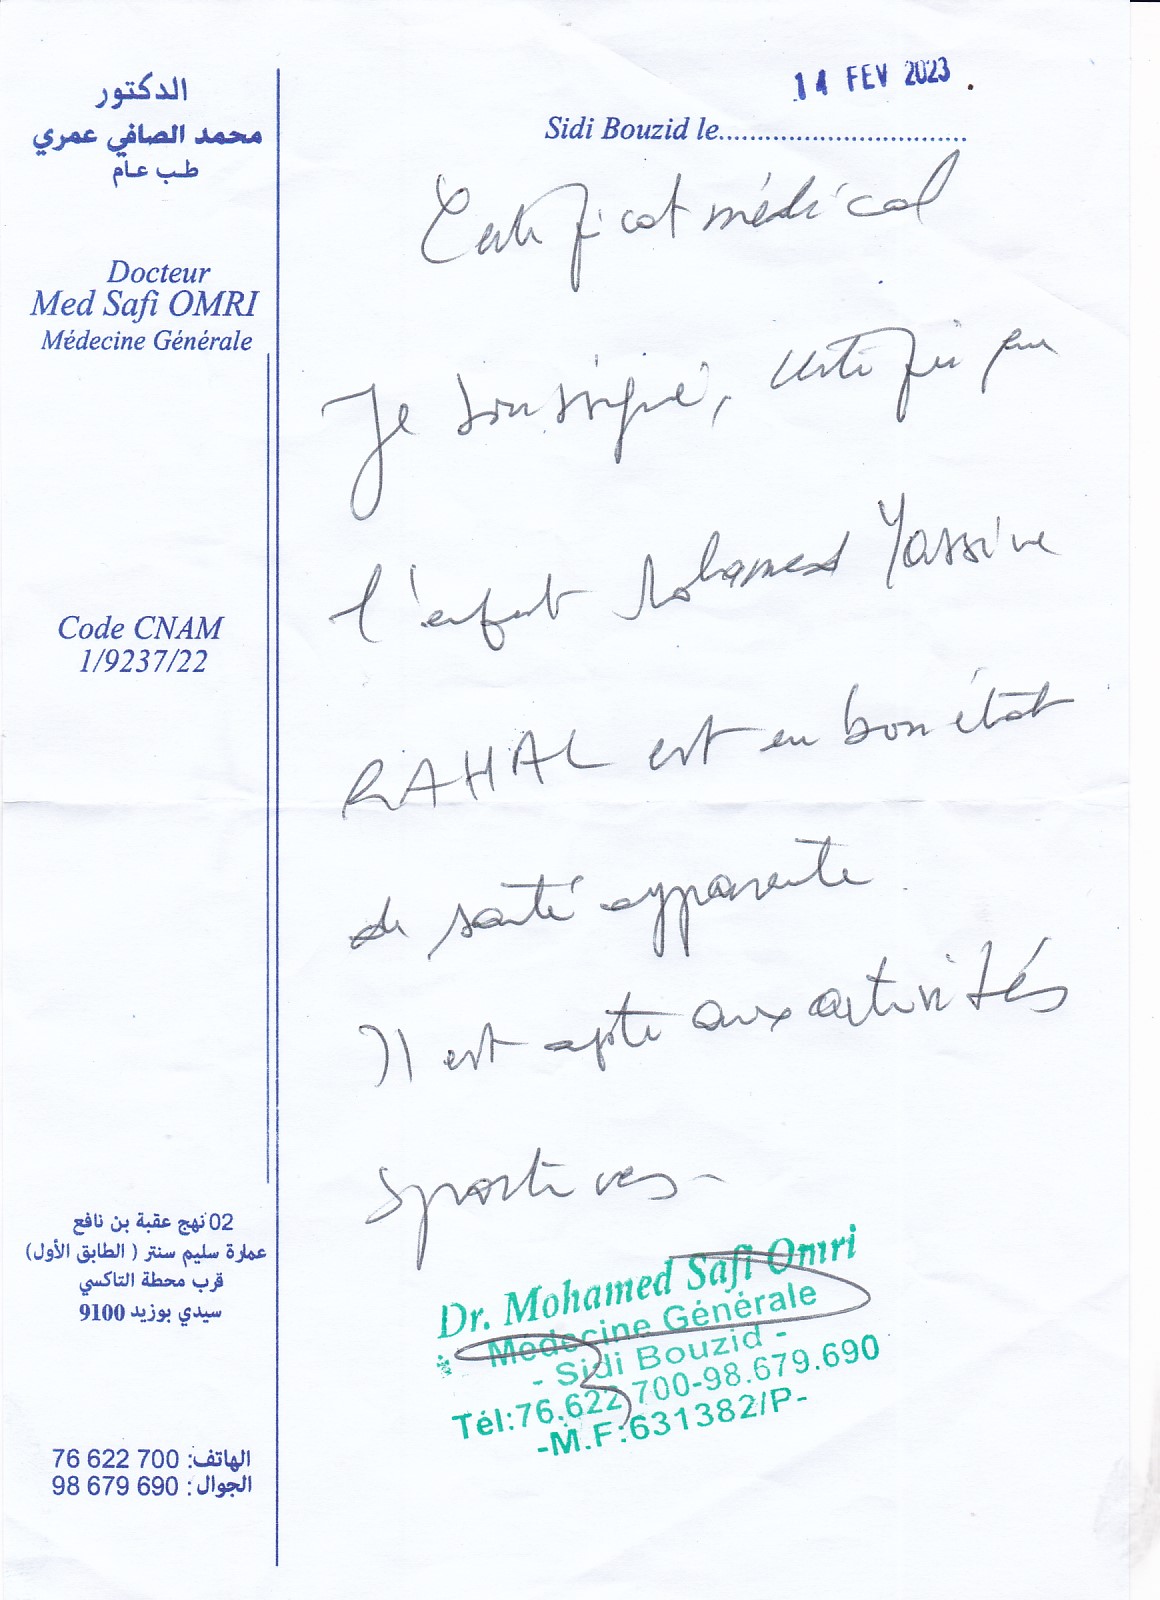 الدكتور
محمد الصافي عمري
طب عام
Docteur
Med Safi OMRI
Médecine Générale
Code CNAM
1/9237/22
02 نهج عقبة بن نافع
عمارة سليم سنتر ( الطابق الأول)
قرب محطة التاكسي
سيدي بوزيد 9100
الهاتف: 700 622 76
الجوال: 690 679 98
14 FEV 2023
Sidi Bouzid le..............................
Certificat médical
Je soussigné, certifie que
l'enfant Mohamed Yassine
RAHAL est en bon état
de santé apparente
Il est apte aux activités
sportives-
Dr. Mohamed Safi Omri
* Médecine Générale
- Sidi Bouzid -
Tél:76.622 700-98.679.690
-M.F:631382/P-